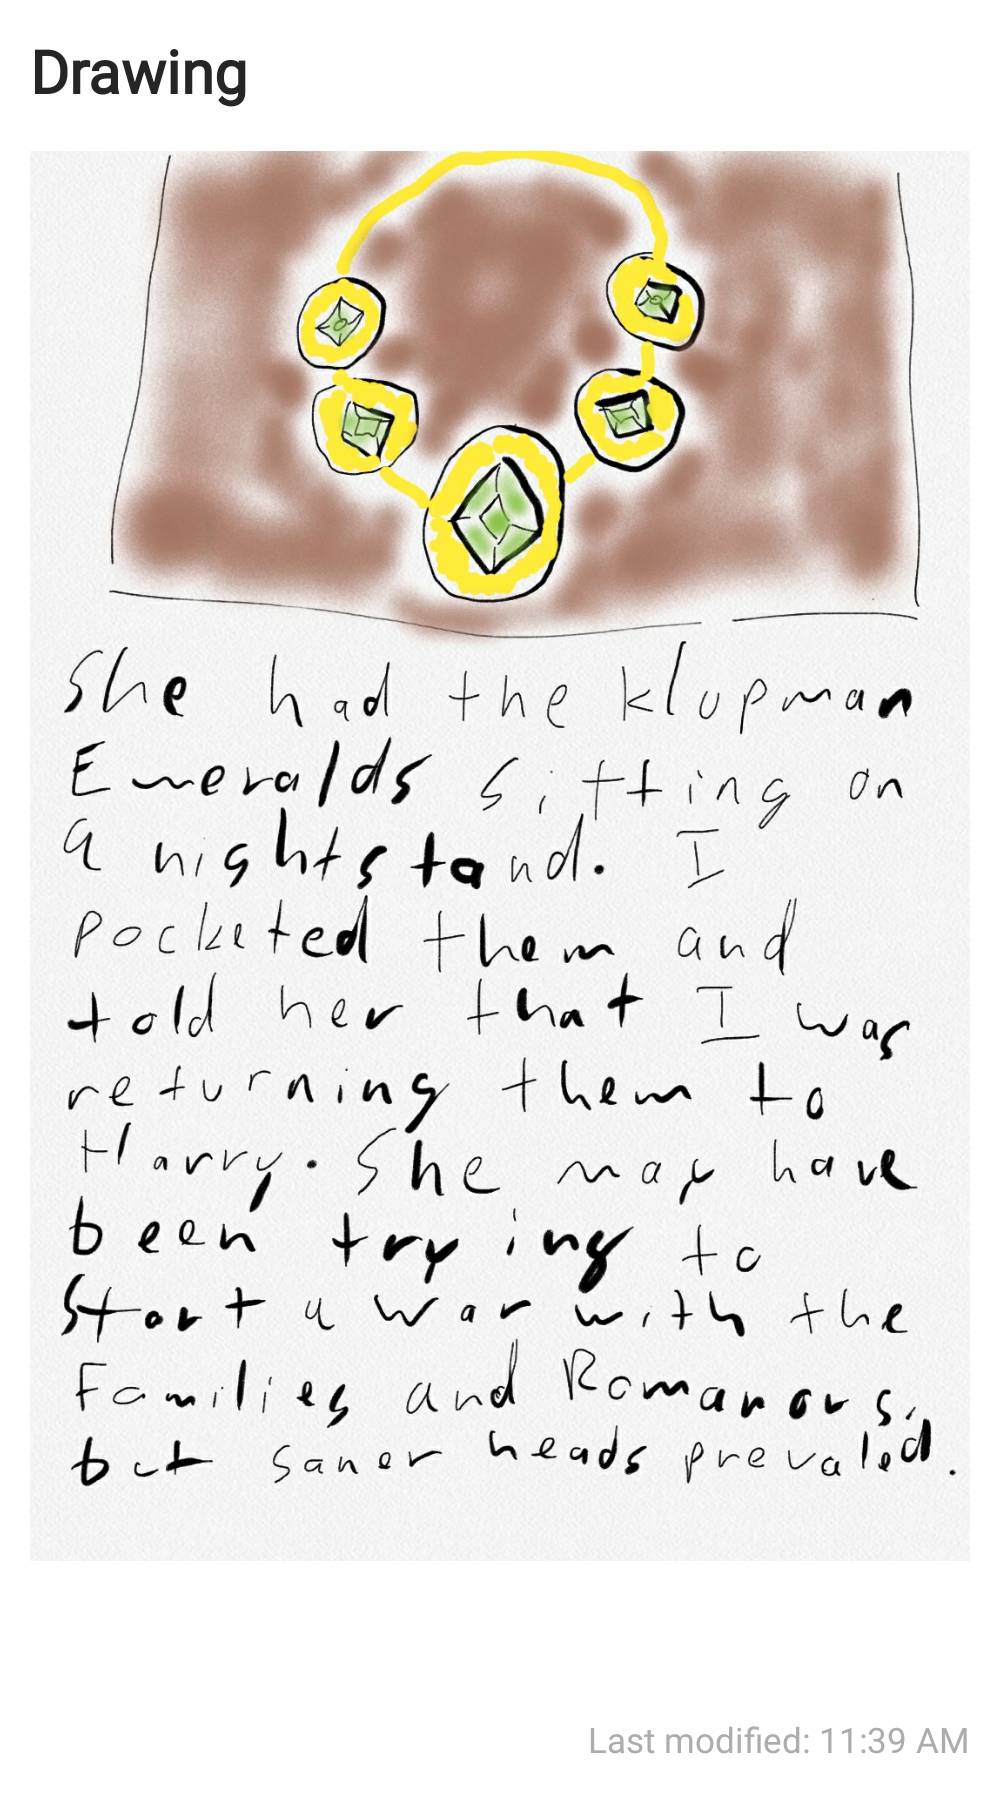 Drawing
She had the Klupman
Emeralds sitting on
a nightstand. I
pocketed them and
told her that I was
returning them to
Harry. She may have
been trying to
start a war with the
Families and Romanovs,
but saner heads prevaled.
Last modified: 11:39 AM